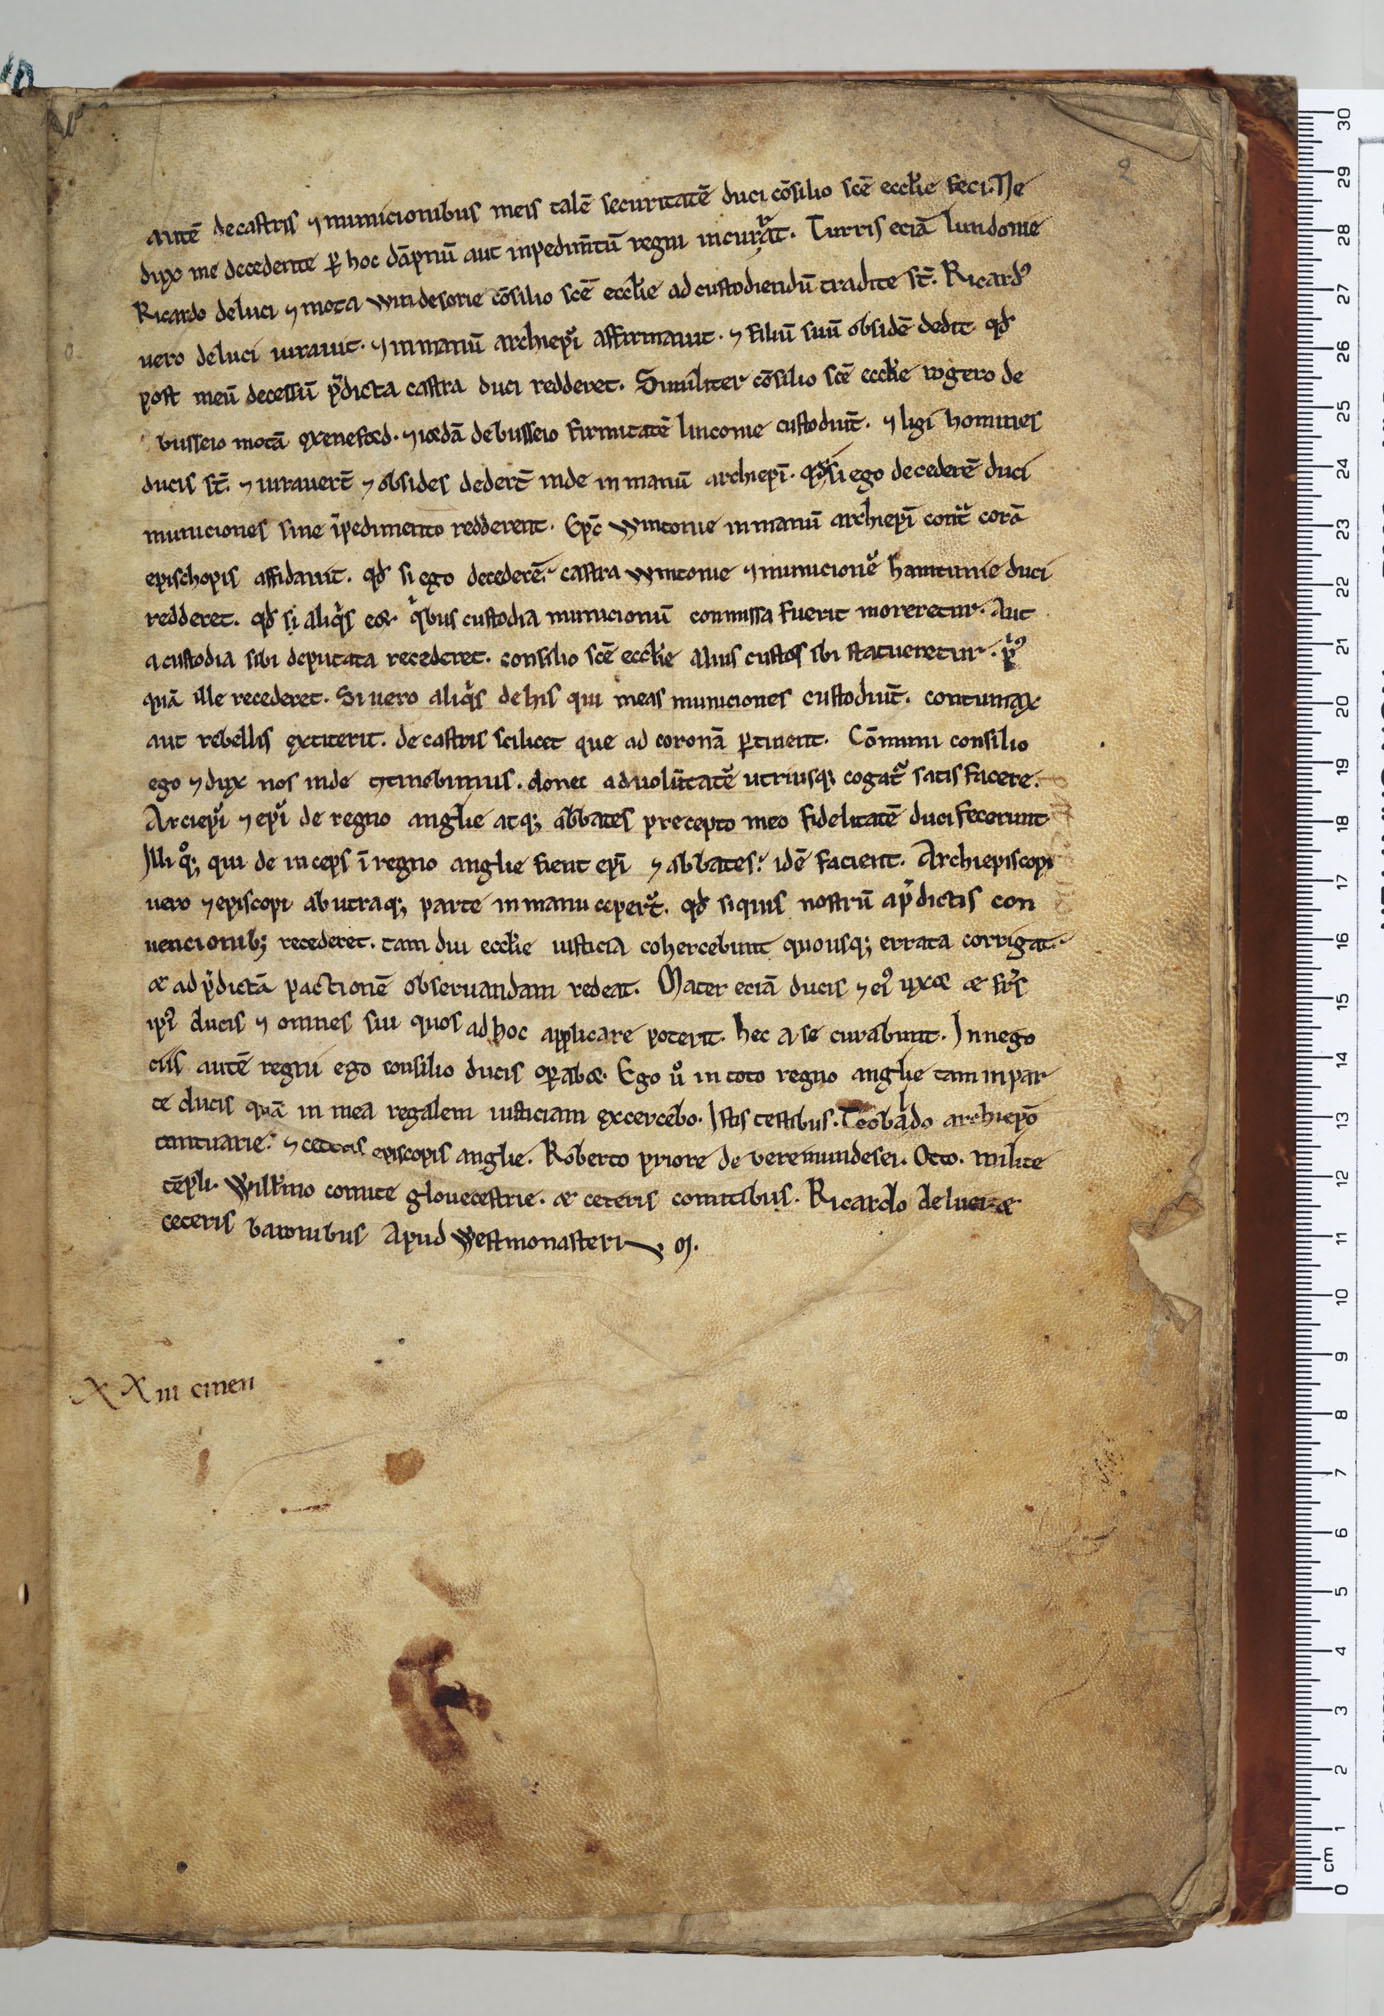 2
autē de castris ⁊ municionibus meis talē securitatē duci cōsilio scē eccl̄ie feci. Ne
dux me decedente ꝑ hoc dāpnū aut inpedimtū regni incurrat. Turris eciā lundonie
Ricardo de luci ⁊ mota windesorie cōsilio scē eccl̄ie ad custodiendū tradite st̄. Ricardꝰ
uero de luci iurauit. ⁊ in manū archiepi affirmauit. ⁊ filiū suū obsidē dedit qđ
post meū decessū p̄dicta castra duci redderet. Similiter cōsilio scē eccl̄ie rogero de
busseio motā oxeneford. ⁊ iordā de busseio firmitatē linconie custodiūt. ⁊ ligi homines
ducis st̄. ⁊ iurauerūt ⁊ obsides dederūt inde in manū archiepī. qđ si ego decederē duci
municiones sine īpedimento redderent. Epc̄ wintonie in manū archiepī cont̄ corā
epischopis affidauit. qđ si ego decederē. castra wintonie ⁊ municionē hamtunie duci
redderet. qđ si aliq̇s eoꝝ q̇bus custodia municionū conmissa fuerit moreretur. Aut
a custodia sibi deputata recederet. consilio scē eccl̄ie alius custos ibi statueretur. ṗꝰ
quā ille recederet. Si uero aliq̇s de his qui meas municiones custodiūt. contumax
aut rebellis extiterit. de castris scilicet que ad coronā ꝑtinent. Cōmuni consilio
ego ⁊ dux nos inde ꝯtinebimus. donec ad uolūtatē utriusqꝫ cogat̄ satis facere.
Arciepi ⁊ epi de regno anglie atqꝫ abbates precepto meo fidelitatē duci fecerunt
Illi qͦꝫ qui de inceps ī regno anglie fient epī ⁊ abbates. idē facient. Archiepiscopi
uero ⁊ episcopi ab utraqꝫ parte in manu ceper̄t. qđ si quis nostrū a p̄dictis con
uencionibꝫ recederet. tam diu eccl̄ie iusticia cohercebunt quousqꝫ errata corrigat.
& ad p̄dictā pactionē obseruandam redeat. Mater eciā ducis ⁊ eiꝰ uxor & fr̄s
ipiꝰ ducis ⁊ omnes sui quos ad hoc applicare poterit. hec a se curabunt. In nego
ciis autē regni ego consilio ducis oꝑabor. Ego ů in toto regno anglie tam in par
te ducis quā in mea regalem iusticiam excercebo. Istis testibus. Teobaldo archiepō
cantuarie. ⁊ ceteris episcopis anglie. Roberto priore de veremundesei. Otto. milite
tēpli. Willmo comite glouecestrie. & ceteris comitibus. Ricardo de luci &
ceteris baronibus Apud Westmonasteri
XX iii
cm
0
1
2
3
4
5
6
7
8
9
10
11
12
13
14
15
16
17
18
19
20
21
22
23
24
25
26
27
28
29
30